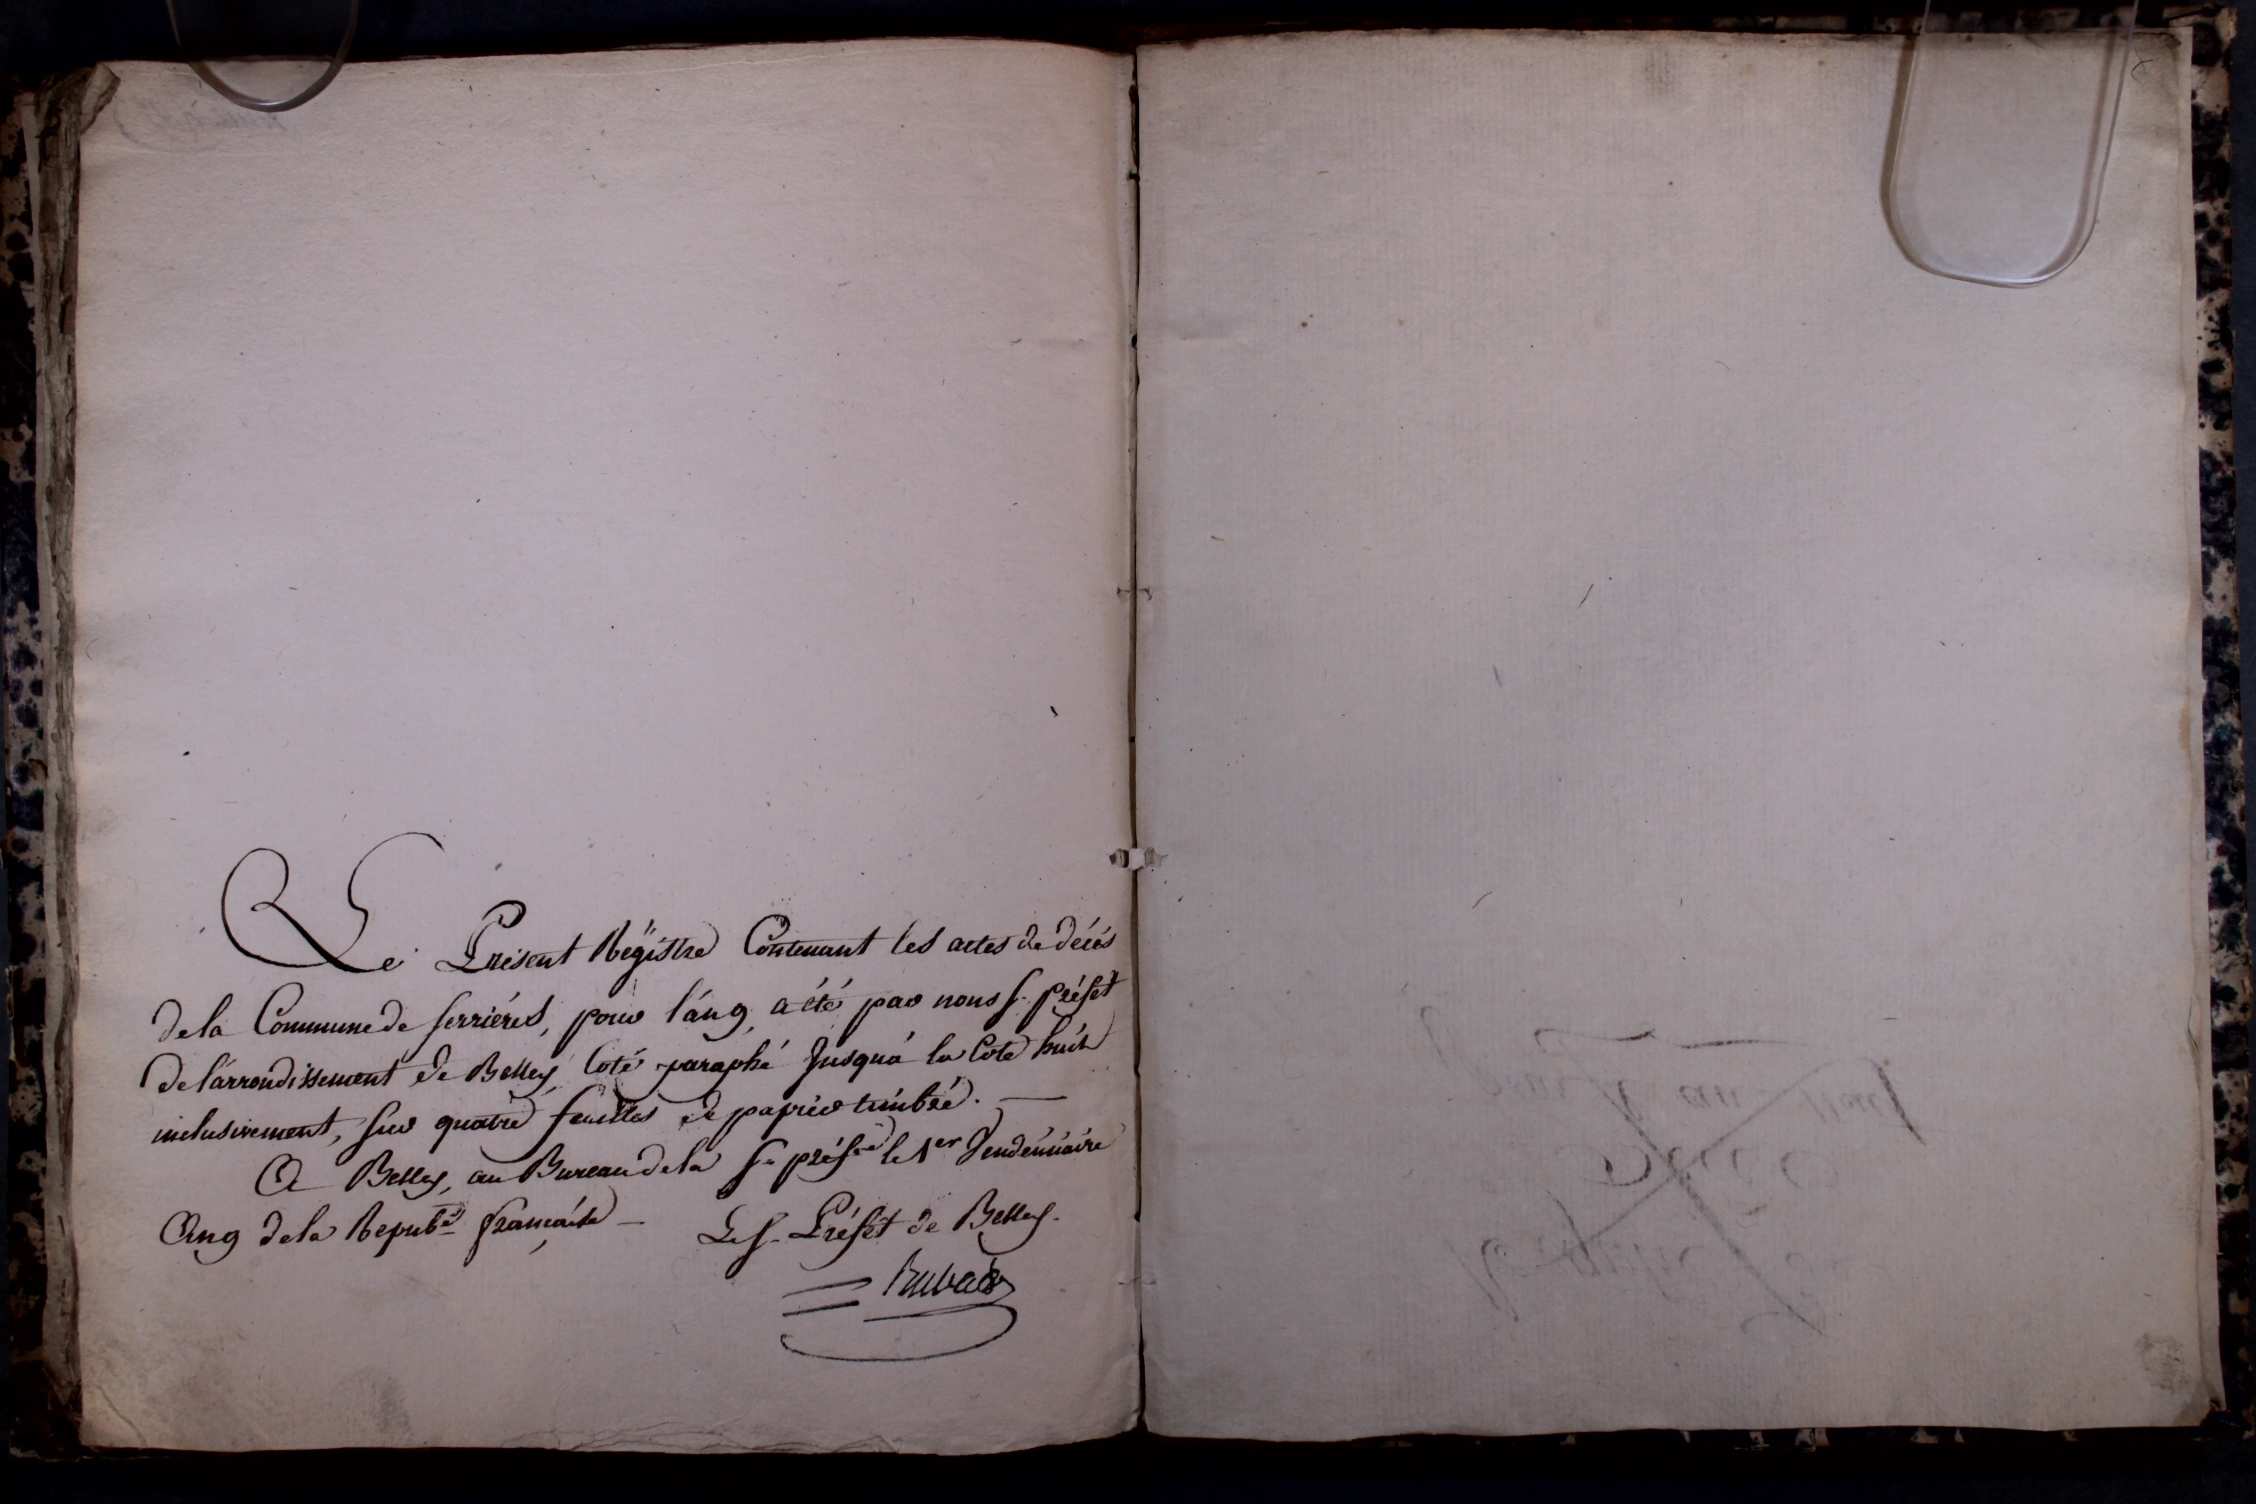 Le Présent Régistre Contenant les actes de décés
de la Commune de serriérés, pour l'an 9, a été par nous s. préfet
de l'arrondissement de Belley Coté paraphé Jusqu'á la Cote huit
inclusivement, sur quatre feuilles de papier timbré.
A Belley, au Bureau de la s. préfre le 1er Vendémiaire
An 9 de la Répub.e française
Le s. Préfet de Belley.